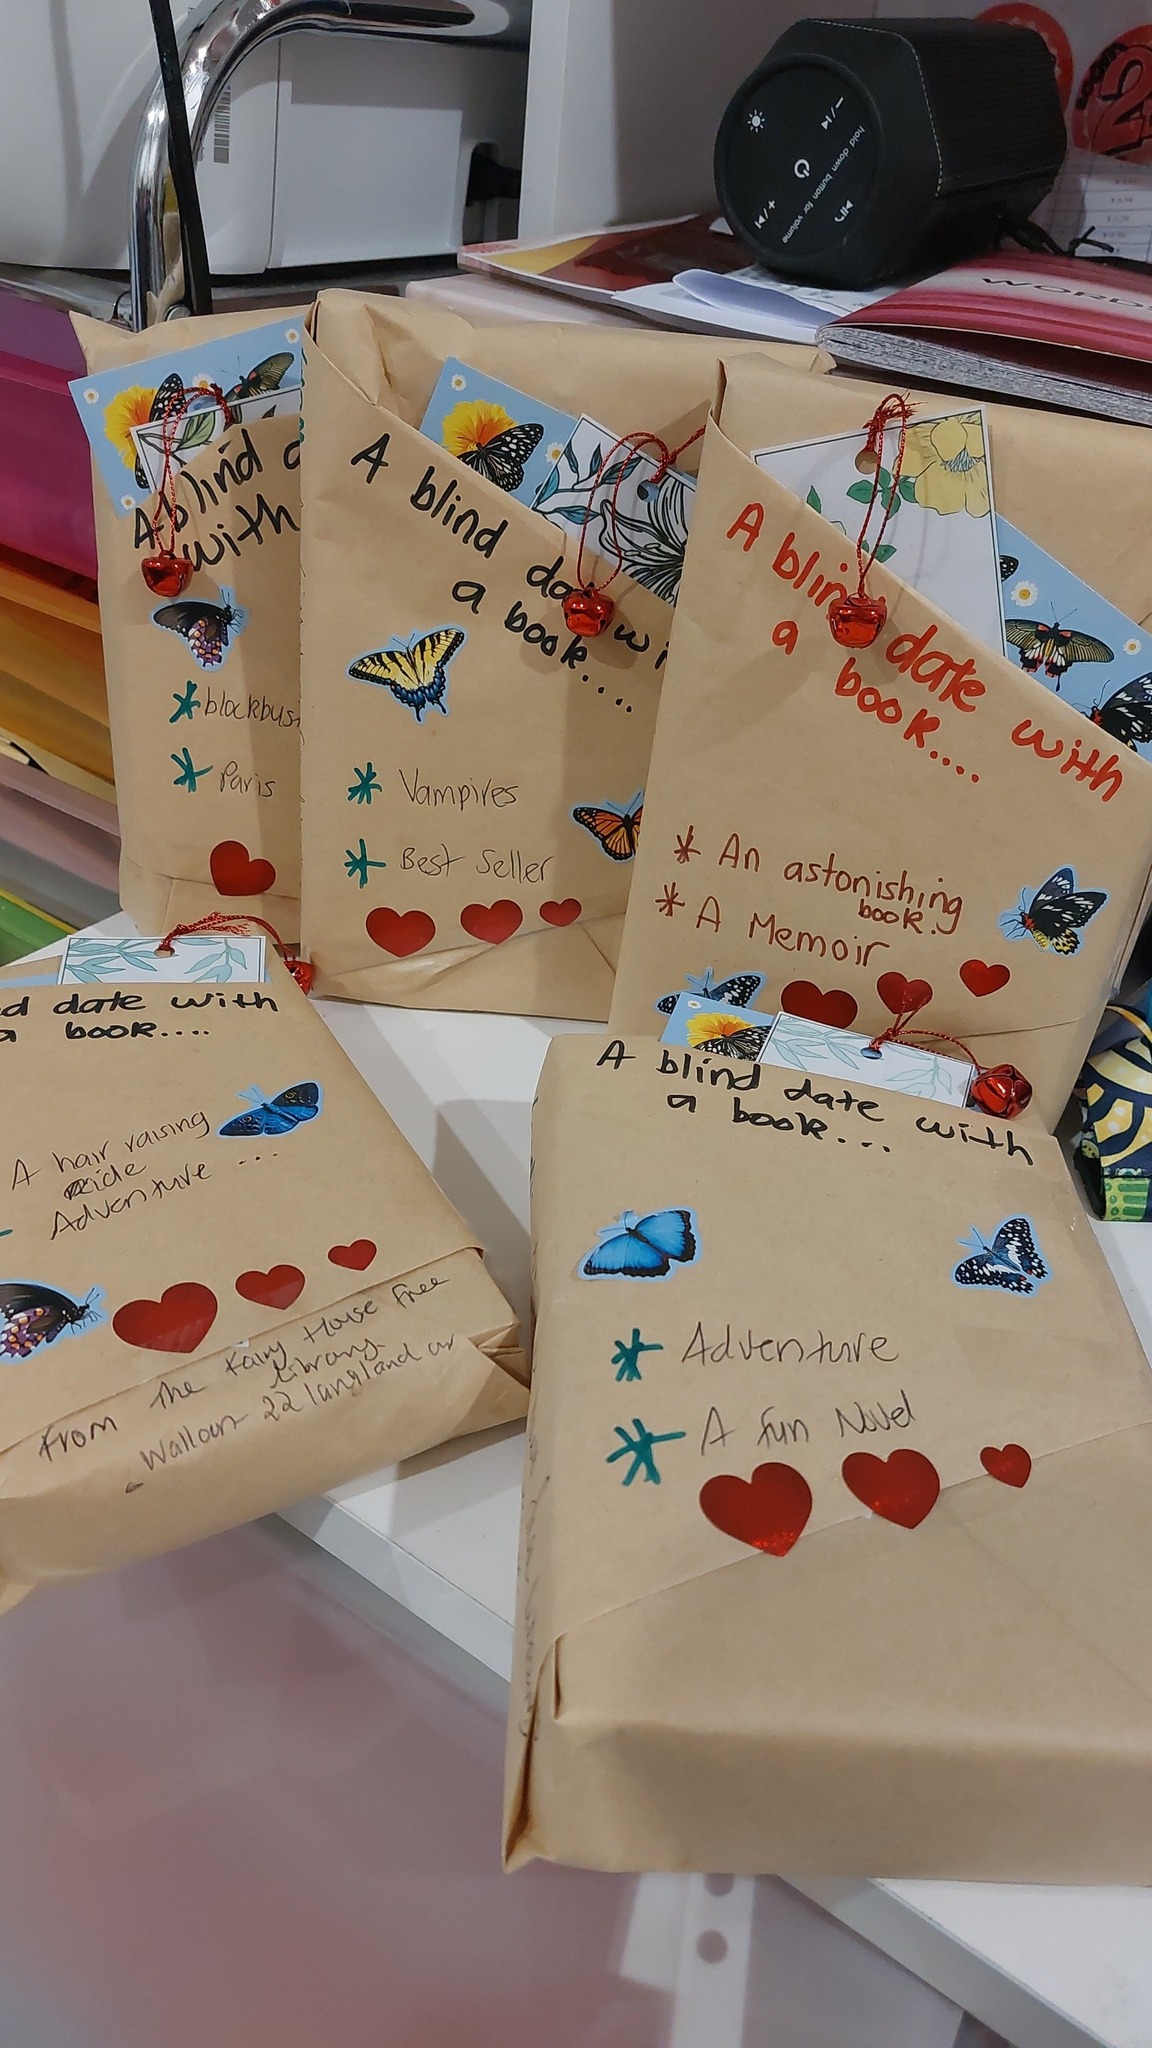 hold down button for volume
WORD
A blind d
with
blockbus
Paris
A blind date wi
a book....
Vampires
Best Seller
A blind date with
a book....
An astonishing
book.
A Memoir
nd date with
a book....
A hair raising
ride
Adventure ...
From The Fairy House Free
Library.
Wallan 22 langland
A blind date with
a book...
Adventure
A fun Novel